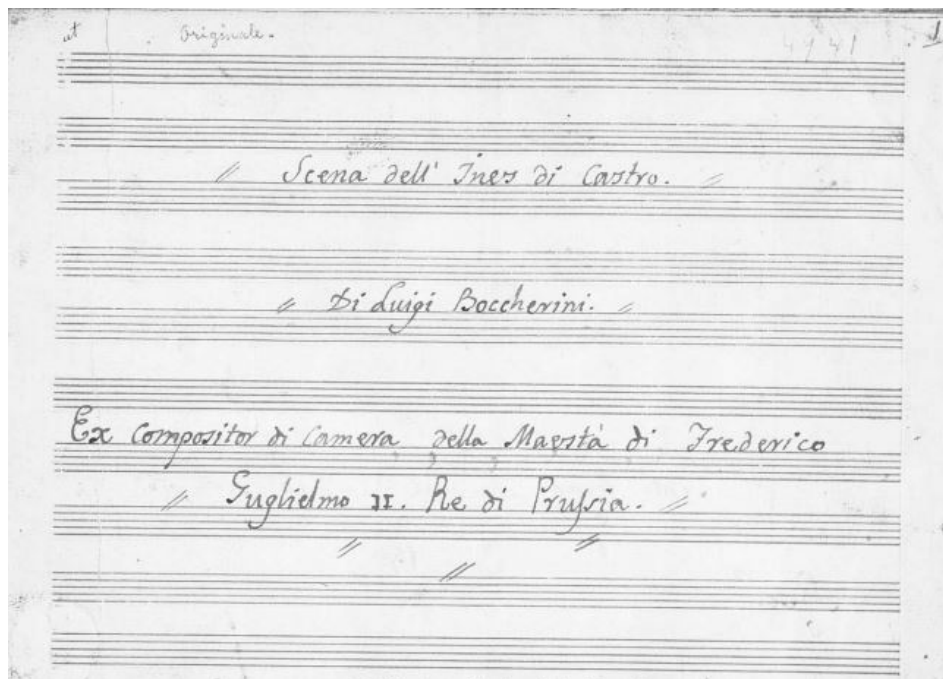 ut Originale. 4941 1
Scena dell' Ines di Castro.
Di Luigi Boccherini.
Ex Compositor di Camera della Maestá di Frederico
Guglielmo II. Re di Prussia.